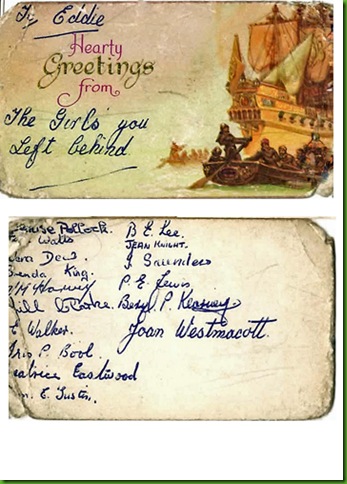 To Eddie
Hearty
Greetings
from
The Girls you
Left behind
Pollock.
Watts
Dews.
King.
Walker.
P. Bool
Eastwood
E. Tustin.
B E. Kee.
JEAN KNIGHT.
J Saunders
P. E. Lewis
Beryl P. Kearney
Joan Westmacott.